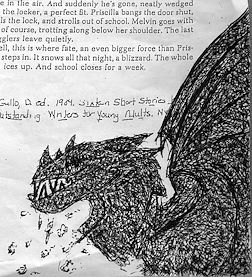 e in the air. And suddenly he's gone, neatly wedged
the locker, a perfect fit. Priscilla bangs the door shut,
s the lock, and strolls out of school. Melvin goes with
of course, trotting along below her shoulder. The last
gglers leave quietly.
ell, this is where fate, an even bigger force than Pris-
steps in. It snows all that night, a blizzard. The whole
ices up. And school closes for a week.
Gallo, D. ed. 1984. Sixteen Short Stories
utstanding Writers for Young Adults. N